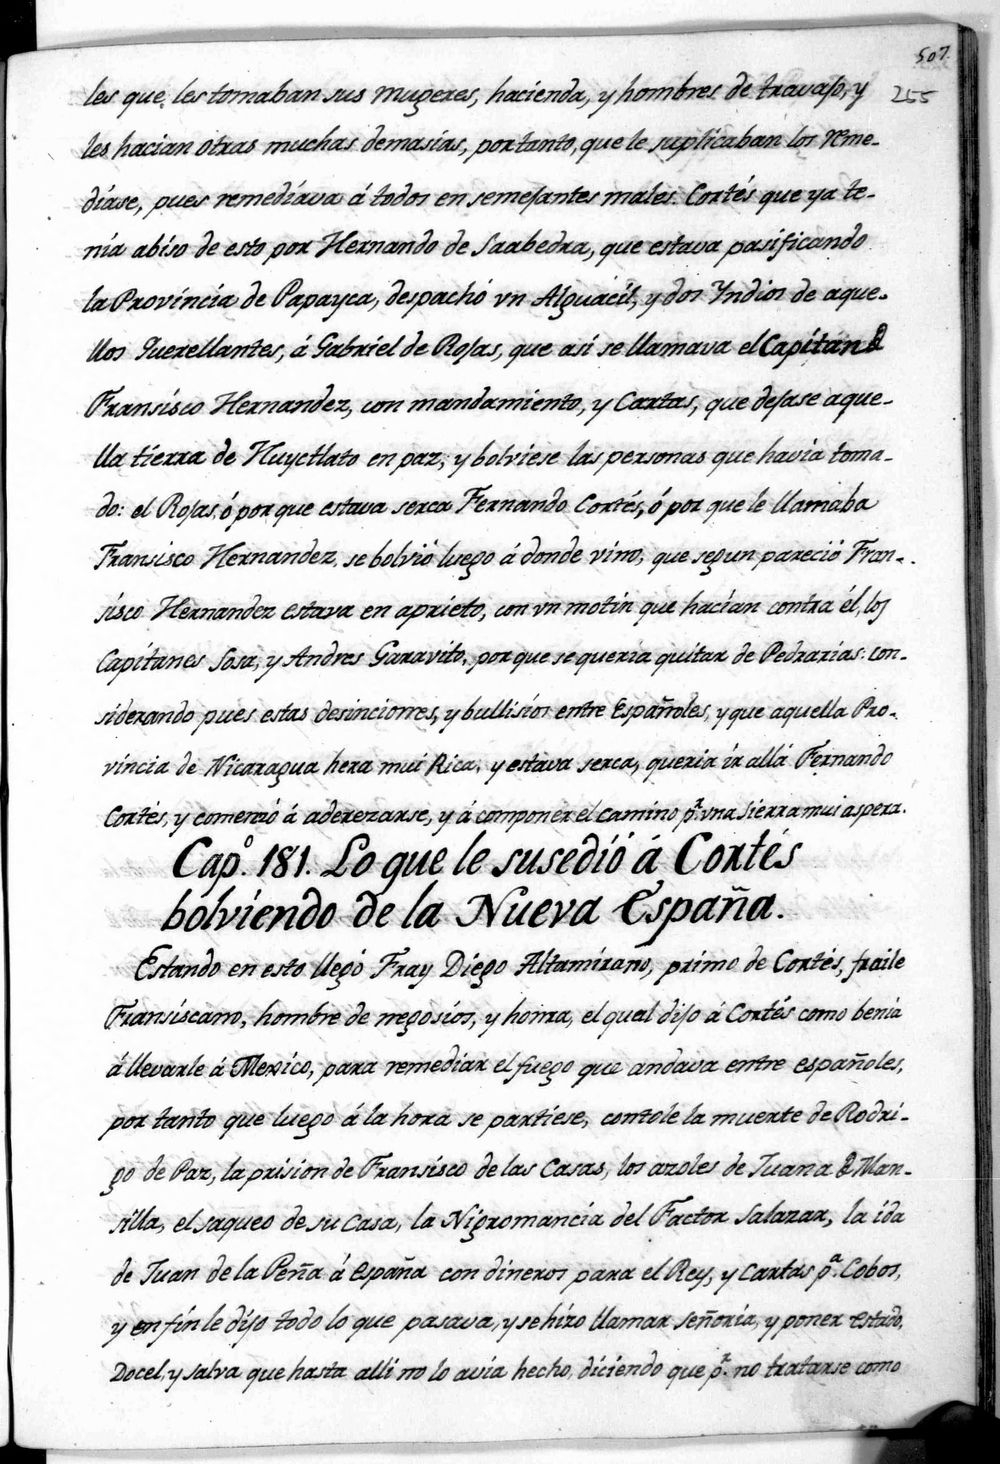 507.
255
les que les tomaban sus mugeres, hacienda, y hombres de travajo, y
les hacian otras muchas demasías, portanto, que le suplicaban los reme-
díase, pues remedíava á todos en semejantes males. Cortés que ya te-
nía abiso de esto por Hernando de Saabedra, que estava pasificando
la Províncía de Papayca, despachó vn Alguacil, y dos Yndios de aque-
llos Querellantes, á Gabriel de Rojas, que asi se llamava el Capitán D
Fransísco Hernandez, con mandamiento, y Cartas, que dejase aque-
lla tíerra de Huyctlato en paz, y bolviese las personas que havia toma-
do: el Rojas, ó por que estava serca Fernando Cortés, ó por que le llamaba
Fransisco Hernandez, se bolvió luego á donde vino, que segun pareció Fran-
sísco Hernandez estava en aprieto, con vn motin que hacían contra él, los
Capitanes Sosa, y Andres Garavito, porque se queria quitar de Pedrarias: con-
siderando pues estas desinciones, y bullisíos entre Españoles, y que aquella Pro-
vincia de Nicaragua hera mui Rica, y estava serca, queria ir allá Fernando
Cortés, y comenzó á aderezarse, y á componer el camino pr. vna Sierra mui aspera.
Capo. 181. Lo que le susedió á Cortés
bolviendo de la Nueva España.
Estando en esto llegó Fray Diego Altamirano, primo de Cortés, fraile
Fransíscano, hombre de negosíos, y honra, el qual dijo á Cortés como benia
á llevarle á Mexico, para remediar el fuego que andava entre españoles,
por tanto que luego á la hora se partiese, contole la muerte de Rodri-
go de Paz, la prision de Fransísco de las Casas, los azotes de Juana D Man-
silla, el saqueo de su Casa, la Nigromancia del Factor Salazar, la ida
de Juan de la Peña á España con dineros para el Rey, y Cartas pa. Cobos,
y en fin le dijo todo lo que pasava, y se hizo llamar Señoria, y poner estado,
Docel, y salva que hasta alli no lo avia hecho, diciendo que pr. no tratarse como